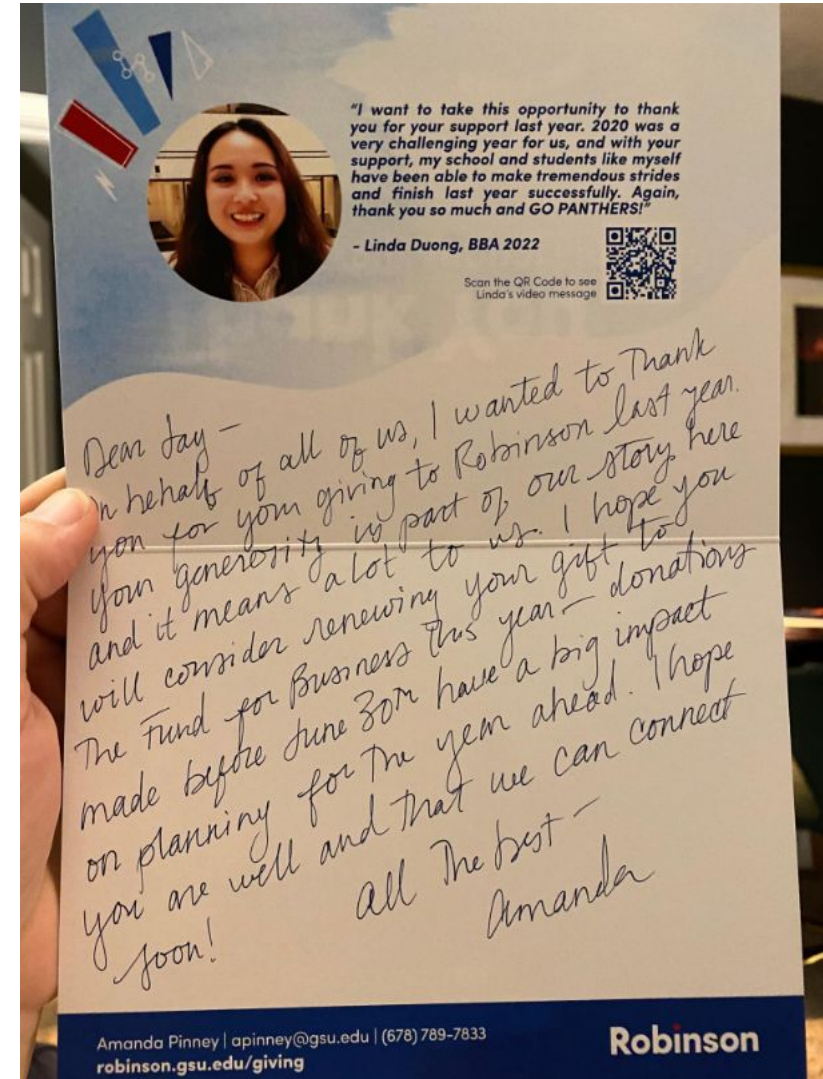 "I want to take this opportunity to thank
you for your support last year. 2020 was a
very challenging year for us, and with your
support, my school and students like myself
have been able to make tremendous strides
and finish last year successfully. Again,
thank you so much and GO PANTHERS!"
- Linda Duong, BBA 2022
Scan the QR Code to see
Linda's video message
Dear Jay -
On behalf of all of us, I wanted to Thank
you for your giving to Robinson last year.
Your generosity is part of our story here
and it means a lot to us. I hope you
will consider renewing your gift to
The Fund for Business This year - donations
made before June 30th have a big impact
on planning for The year ahead. I hope
you are well and That we can connect
soon!
All The best -
Amanda
Amanda Pinney | apinney@gsu.edu | (678) 789-7833
robinson.gsu.edu/giving
Robinson